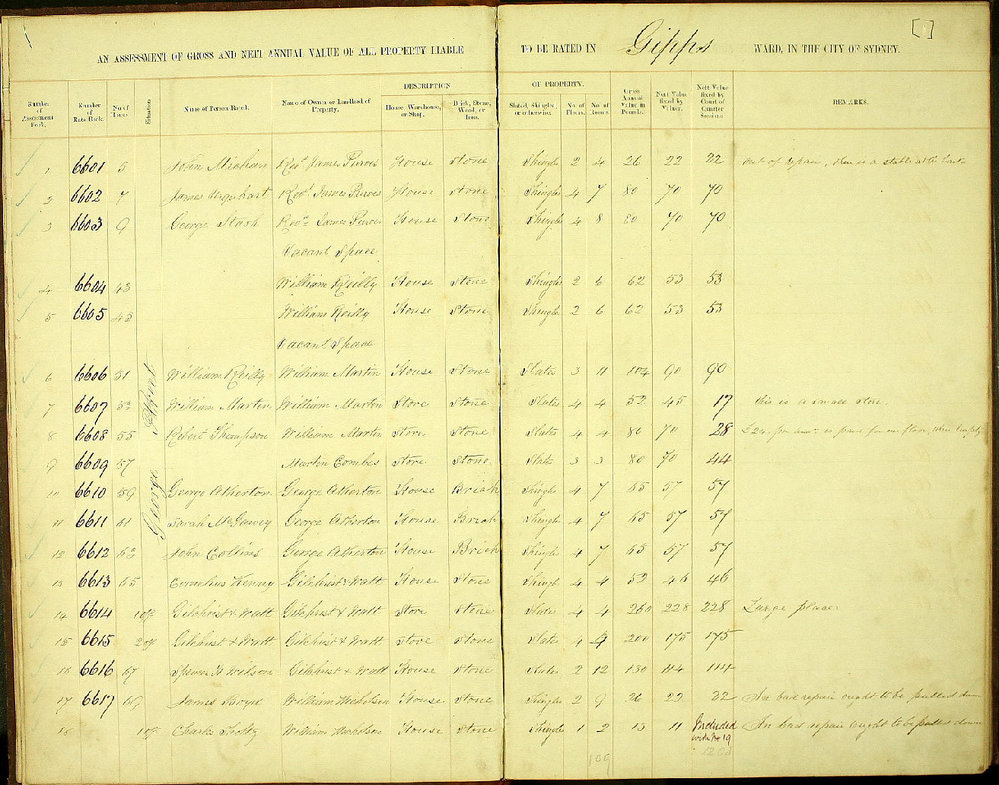 [1]
AN ASSESSMENT OF GROSS AND NETT ANNUAL VALUE OF ALL PROPERTY LIABLE TO BE RATED IN Gipps WARD, IN THE CITY OF SYDNEY.
DESCRIPTION OF PROPERTY.
Number of Assessment Book. Number of Rate Book. No. of House Situation Name of Person Rated. Name of Owner or Landlord of Property. House, Warehouse, or Shop. Brick, Stone, Wood, or Iron. Slated, Shingled, or otherwise. No. of Floors. No. of Rooms. Gross Annual Value in Pounds. Nett Value fixed by Valuer. Nett Value fixed by Court of Quarter Sessions REMARKS.
George Street
1 6601 5 John Revd James Purves House Stone Shingle 2 4 26 22 22 out of repair, there is a stable at the back
2 6602 7 James Urquhart Revd James Purves House Stone Shingle 4 7 80 70 70
3 6603 9 George Revd James Purves House Stone Shingle 4 8 80 70 70
Vacant Space
4 6604 43 William Reilly House Stone Shingle 2 6 62 53 53
5 6605 45 William Reilly House Stone Shingle 2 6 62 53 53
Vacant Space
6 6606 51 William Reilly William Martin House Stone Slate 3 11 104 90 90
7 6607 53 William Martin William Martin Store Stone Slate 4 4 52 45 17 this is a small store.
8 6608 55 Robert Thompson William Martin Store Stone Slate 4 4 80 70 28 £24 per ann
9 6609 57 Martin Combes Store Stone Slate 3 3 80 70 44
10 6610 59 George Atherton George Atherton House Brick Shingle 4 7 65 57 57
11 6611 61 Sarah George Atherton House Brick Shingle 4 7 65 57 57
12 6612 63 John Collins George Atherton House Brick Shingle 4 7 65 57 57
13 6613 65 Cornelius Kenny Gilchrist & Watt House Stone Shingle 4 4 52 46 46
14 6614 off Gilchrist & Watt Gilchrist & Watt Store Stone Slate 4 4 260 228 228 Large place
15 6615 off Gilchrist & Watt Gilchrist & Watt Store Stone Slate 4 4 200 175 175
16 6616 67 Wilson Gilchrist & Watt House Stone Slate 2 12 130 114 114
17 6617 James William Nicholson House Stone Shingle 2 9 26 22 22 In bad repair ought to be pulled down
18 off Charles William Nicholson House Stone Shingle 1 2 13 11 Included with No 19 In bad repair ought to be pulled down